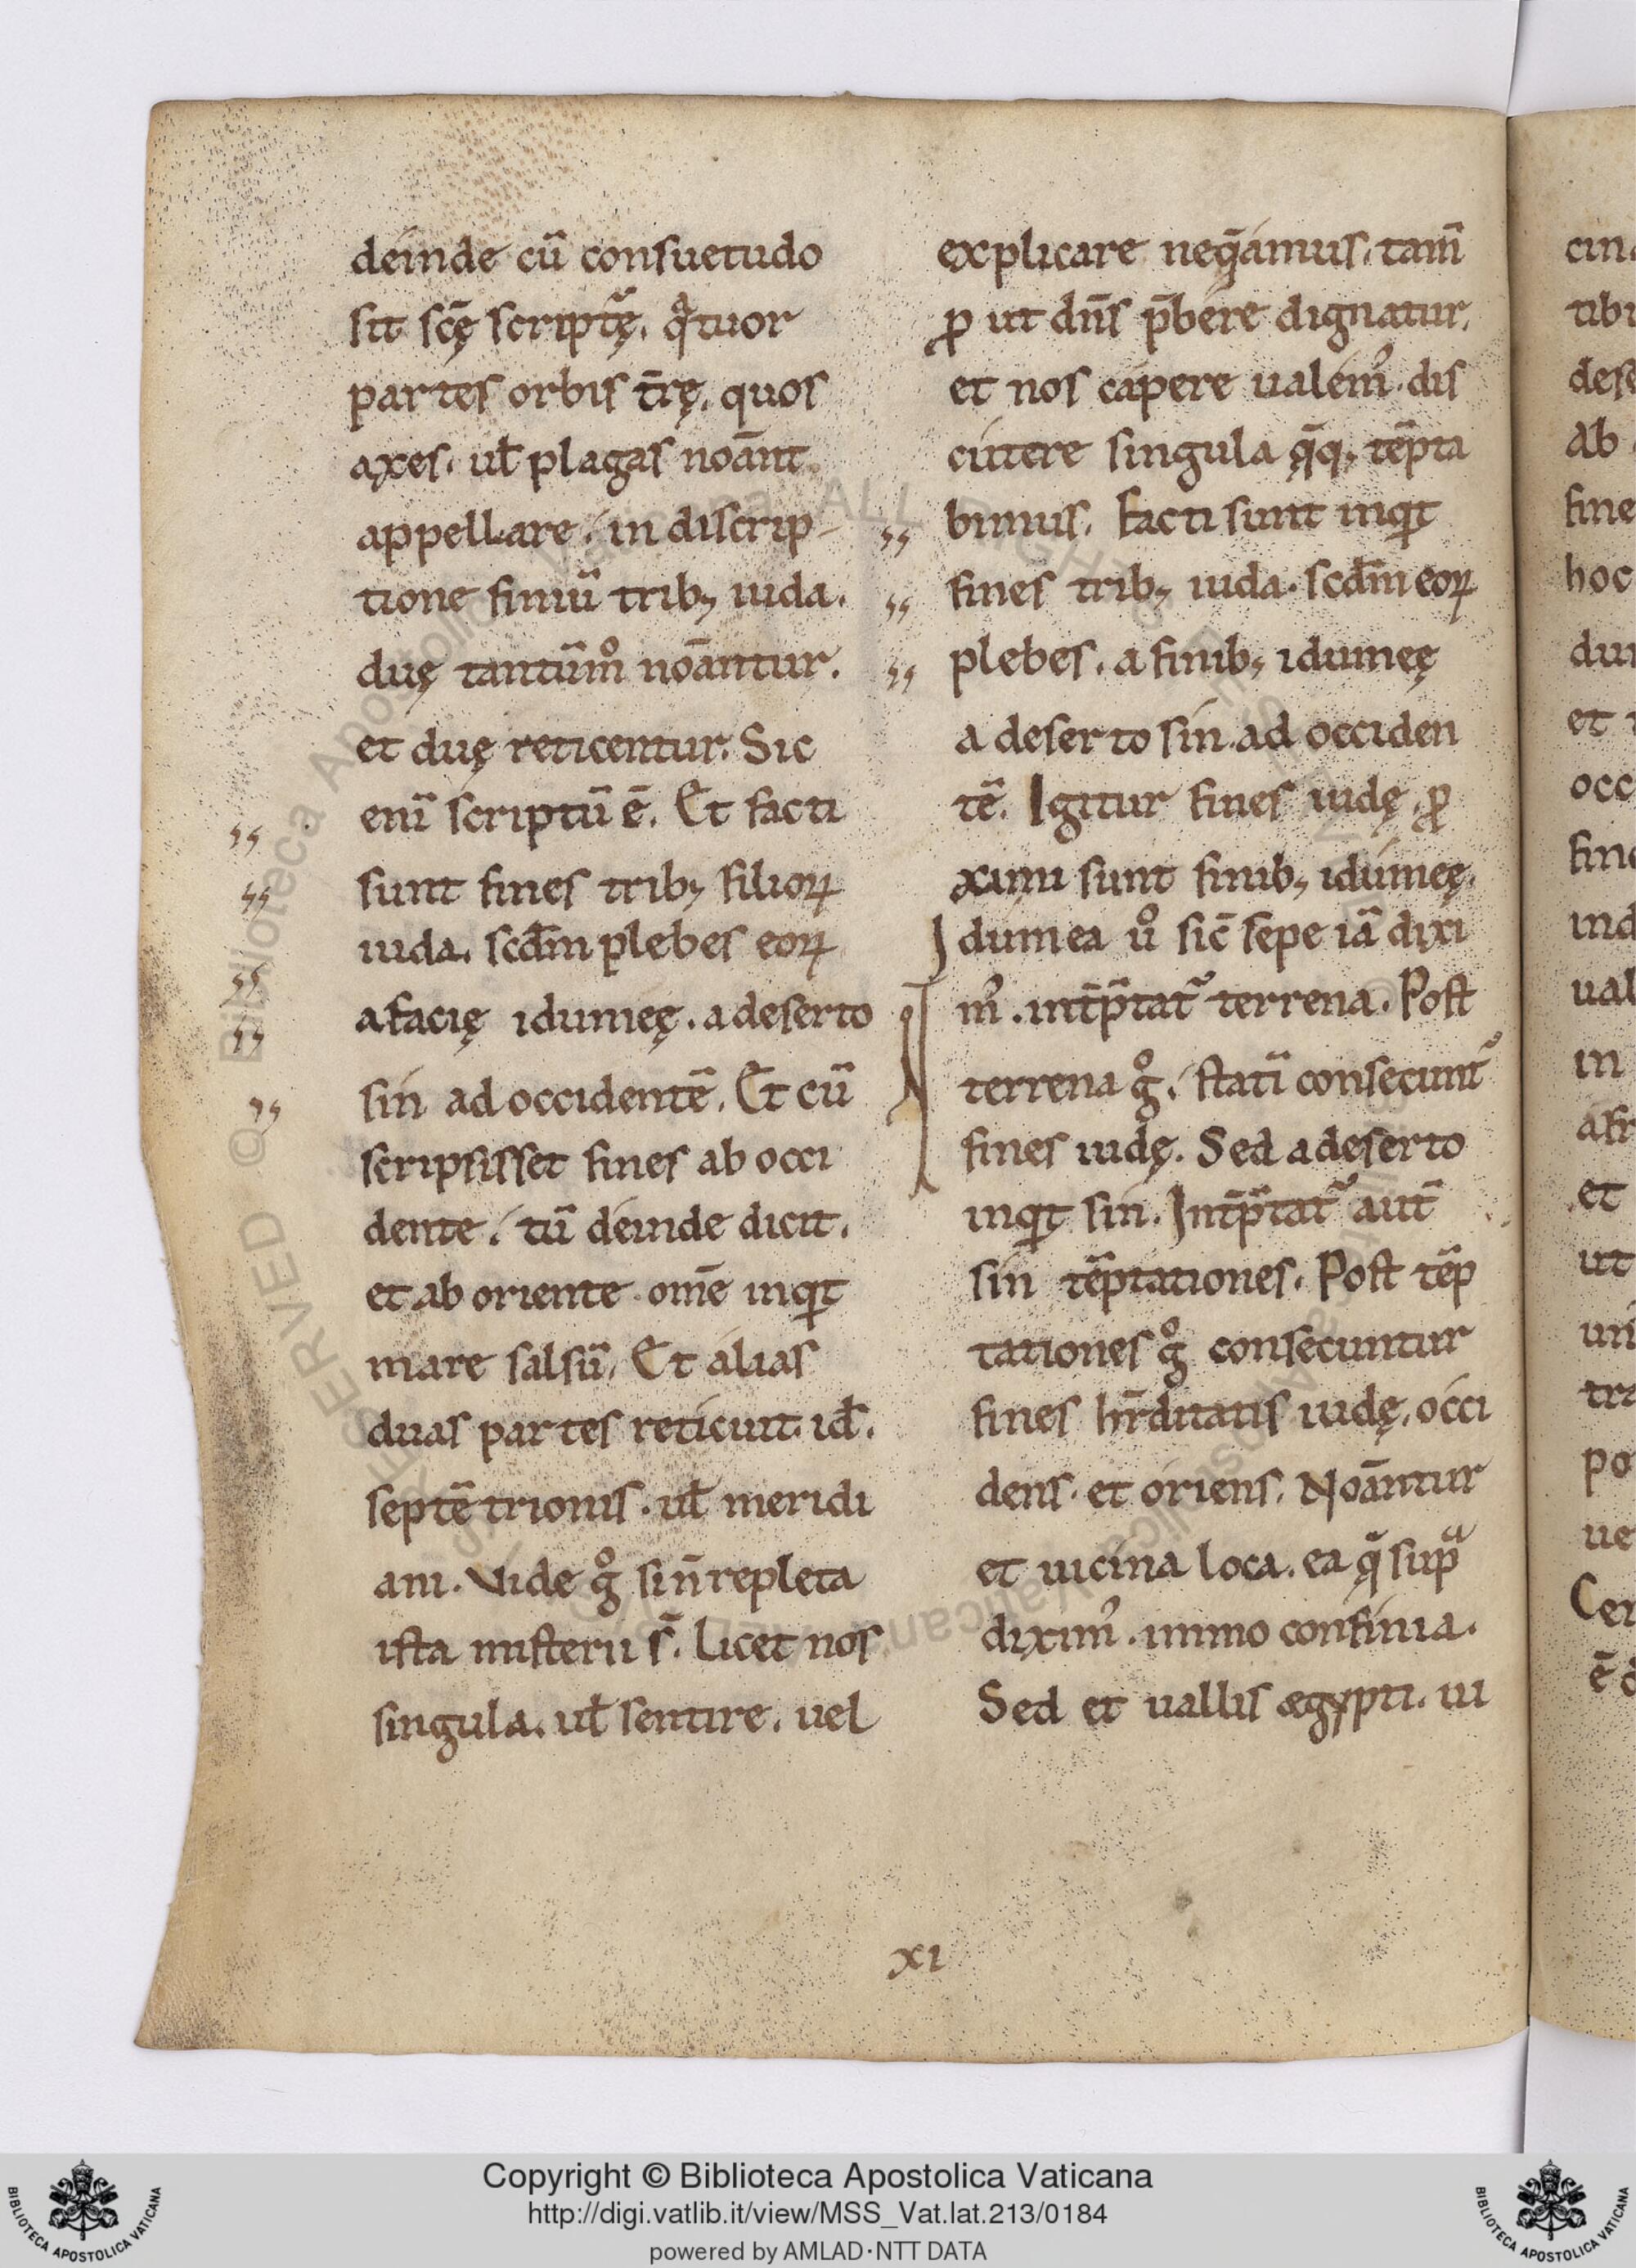 deinde cū consuetudo
sit scę̄ scriptę̄. qͣtuor
partes orbis tr̄ę. quos
axes. ul̄ plagas noānt
appellare. in discrip-
tione finiū trib; iuda.
duę tantūm̊ noāntur.
et duę reticentur. Sic
eni̅ scriptū ē. Et facti
sunt fines trib; filioꝝ
iuda. scd̄m plebes eoꝝ
a facię idumeę. a deserto
sin ad occidentē. Et cū
scripsisset fines ab occi
dente. tū deinde dicit.
et ab oriente om̄e inqͥt
mare salsū. Et alias
duas partes reticuit. id̄.
septētrionis. ul̄ meridi
ani. Vide g̊ sin̄ repleta
ista misterii s̄. Licet nos
singula. ul̄ sentire. uel
explicare neq̄amus. tam̄
ꝓ ut dn̄s p̄bere dignatur.
et nos capere ualem᾽. dis
cutere singula q̄q; tēpta
bimus. Facti sunt inqͥt
fines trib; iuda. scd̄m eoꝝ
plebes. a finib; idumeę
a deserto sin. ad occiden
tē. Igitur fines iudę. ꝓ
ximi sunt finib; idumeę.
Idumea ů sic̄ sepe iā dixi
m᾽. int̄p̄tat᷑ terrena. Post
terrena g̊. stati̅ consecunt᷑
fines iudę. Sed a deserto
inqͥt sin. Int̄p̄tat᷑ aut̄
sin tēptationes. Post tēp
tationes g̊ consecuntur
fines hr̄ditatis iudę. occi
dens. et oriens. Noāntur
et uicina loca. ea q̄ supͣ
dixim᾽. immo confinia.
Sed et uallis ægypti. ui
xi
cin
tibi
des
ab
fine
hoc
du
et
occ
fin
ind
ual
in
afr
et
ut
un
tra
po
ue
Cer
ē
Copyright © Biblioteca Apostolica Vaticana
http://digi.vatlib.it/view/MSS_Vat.lat.213/0184
powered by AMLAD·NTT DATA
BIBLIOTECA APOSTOLICA VATICANA
BIBLIOTECA APOSTOLICA VATICANA